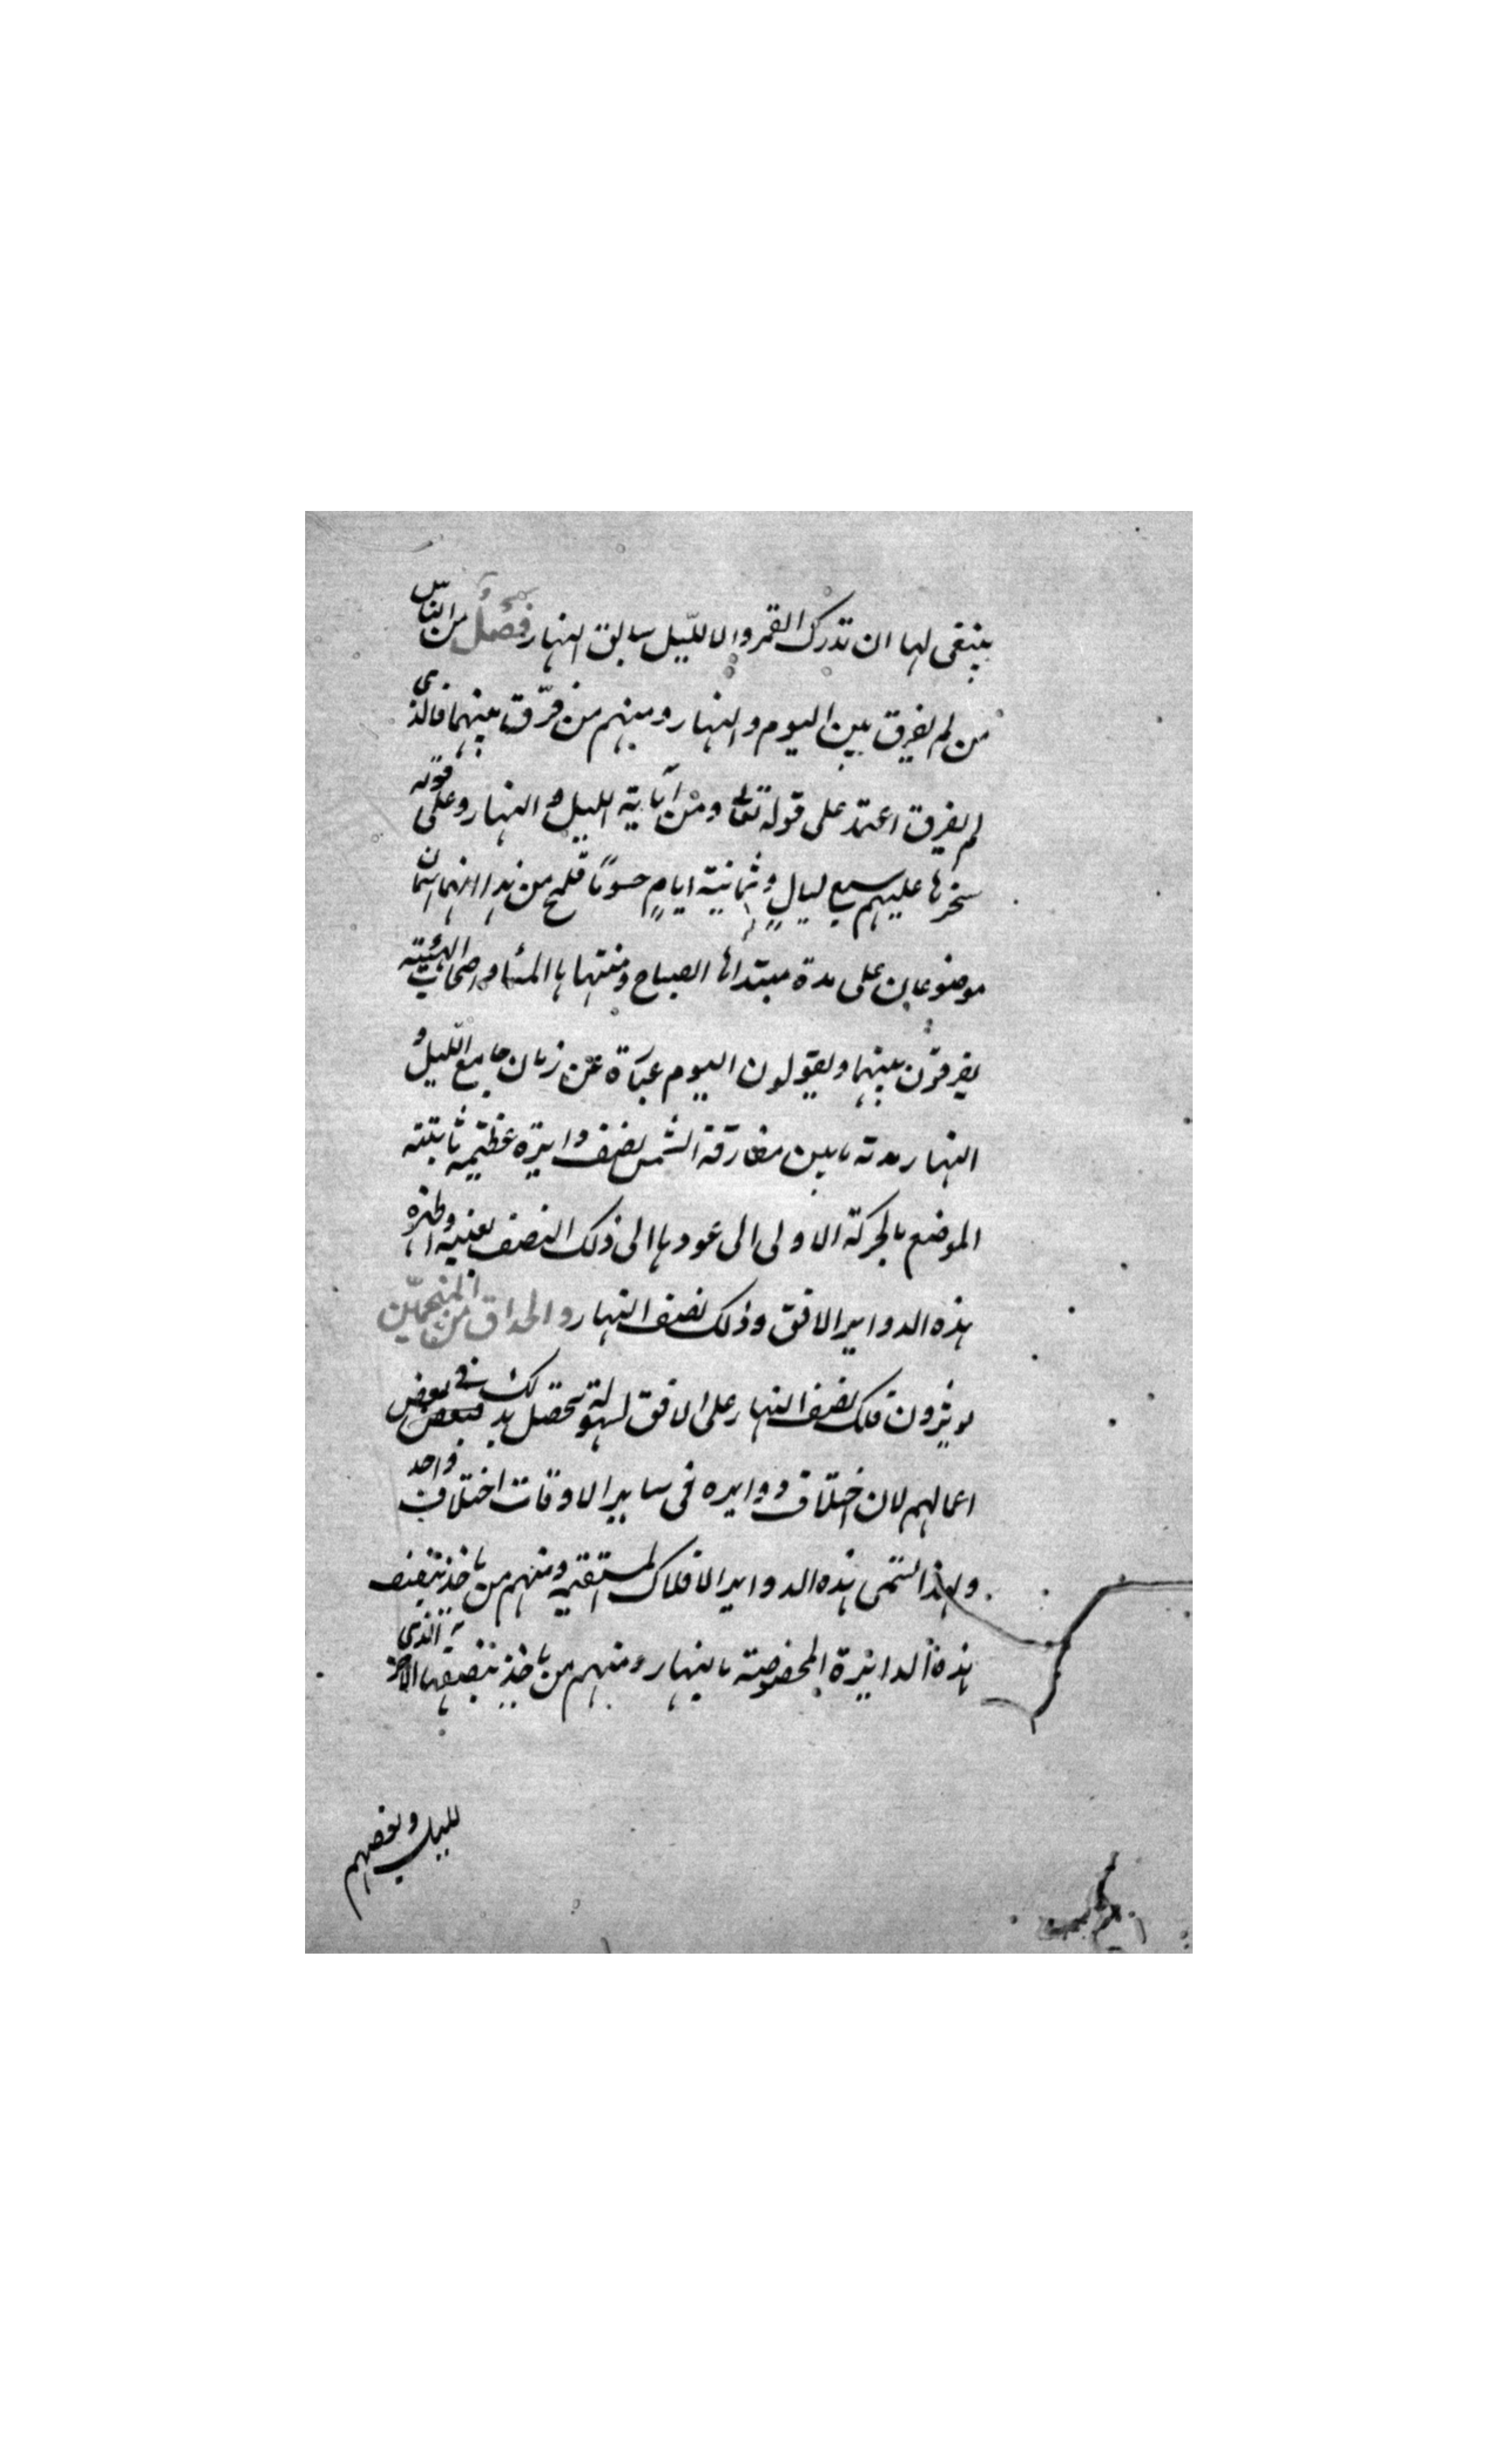 ينبغى لها ان تدرك القمر ولا الليل سابق النهار فصل من الناس
من لم يفرق بين اليوم والنهار ومنهم من فرّق بينهما فالذى
لم يفرق اعتمد على قوله تعالى ومن آياته الليل والنهار وعلى قوله
سخرها عليهم سبع ليالٍ وثمانية ايامٍ حسومًا فلمح من هذا انهما اسمان
موضوعان على مدة مبتداها الصباح ومنتهاها المساء واصحاب الهيئة
يفرقون بينهما ويقولون اليوم عبارة عن زمان جامع الليل و
النهار مدته ما بين مفارقة الشمس نصف دايرة عظيمة ثابتة
الموضع بالحركة الاولى الى عودها الى ذلك النصف بعينه واظهر
هذه الدواير الافق وذلك نصف النهار والحذاق من المنجمين
يوثرون فلك نصف النهار على الافق لسهولة تحصل بذلك فى بعض
اعمالهم لان اختلاف دوايره فى ساير الاوقات اختلاف واحد
ولهذا تسمى هذه الدواير الافلاك المستقيمة ومنهم من ياخذ بنصف
هذه الدائرة المخصوصة بالنهار ومنهم من ياخذ بنصفها الذى
لليل وبعضهم